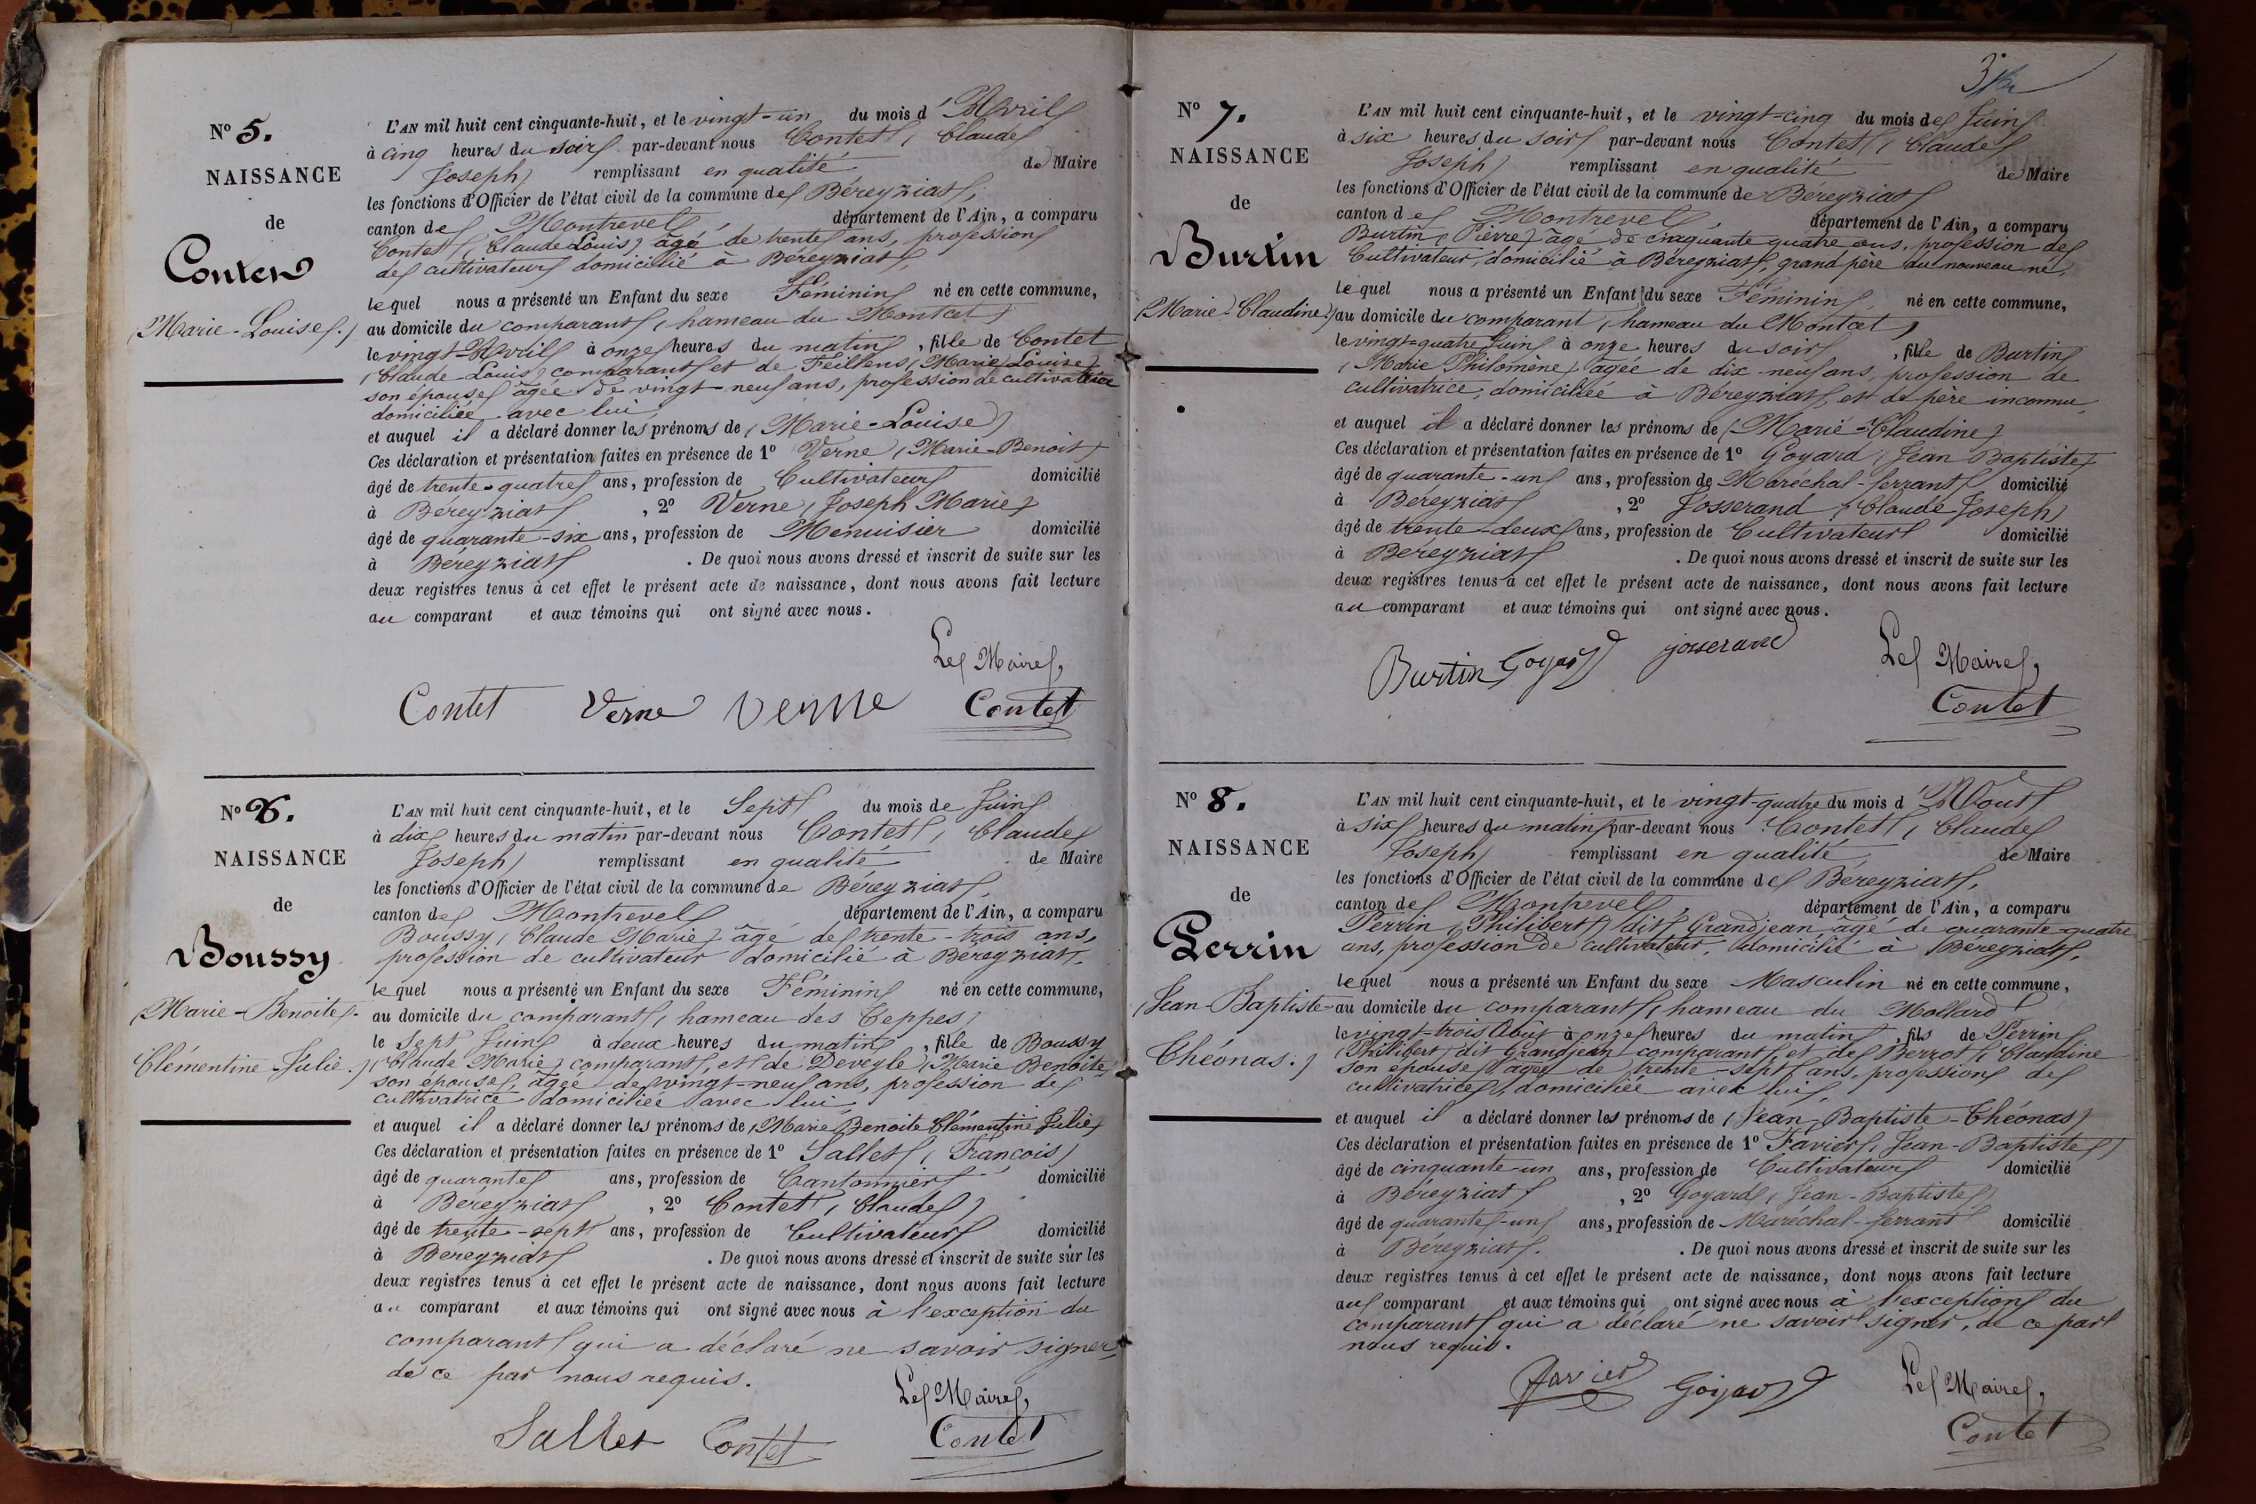 N° 5.
NAISSANCE
de
Contet
(Marie-Louise.)
L'AN mil huit cent cinquante-huit, et le vingt-un du mois d'Avril
à cinq heures du soir par-devant nous Contet (Claude
Joseph) remplissant en qualité de Maire
les fonctions d'Officier de l'état civil de la commune de Béreyziat,
canton de Montrevel, département de l'Ain, a comparu
Contet (Claude Louis) âgé de trente ans, profession
de cultivateur domicilié à Béreyziat,
lequel nous a présenté un Enfant du sexe Féminin né en cette commune,
au domicile du comparant, hameau du Montcet,
le vingt Avril à onze heures du matin, fille de Contet
(Claude-Louis) comparant et de Feillens (Marie Louise)
son épouse âgée de vingt-neuf ans, profession de cultivatrice
domiciliée avec lui,
et auquel il a déclaré donner les prénoms de (Marie-Louise)
Ces déclaration et présentation faites en présence de 1° Verne (Marie-Benoit)
âgé de trente-quatre ans, profession de Cultivateur domicilié
à Béreyziat, 2° Verne (Joseph Marie)
âgé de quarante-six ans, profession de Menuisier domicilié
à Béreyziat. De quoi nous avons dressé et inscrit de suite sur les
deux registres tenus à cet effet le présent acte de naissance, dont nous avons fait lecture
au comparant et aux témoins qui ont signé avec nous.
Le Maire,
Contet Verne Verne Contet
N° 6.
NAISSANCE
de
Boussy
(Marie-Benoite-
Clémentine-Julie.)
L'AN mil huit cent cinquante-huit, et le Sept du mois de Juin
à dix heures du matin par-devant nous Contet (Claude
Joseph) remplissant en qualité de Maire
les fonctions d'Officier de l'état civil de la commune de Béreyziat,
canton de Montrevel département de l'Ain, a comparu
Boussy (Claude Marie) âgé de trente-trois ans,
profession de cultivateur domicilié à Béreyziat,
lequel nous a présenté un Enfant du sexe Féminin né en cette commune,
au domicile du comparant, hameau des Teppes,
le Sept Juin à deux heures du matin, fille de Boussy
(Claude Marie) comparant, et de Deveyle (Marie Benoite)
son épouse, âgée de vingt-neuf ans, profession de
cultivatrice domiciliée avec lui
et auquel il a déclaré donner les prénoms de (Marie Benoite Clémentine Julie)
Ces déclaration et présentation faites en présence de 1° Sallet (François)
âgé de quarante ans, profession de Cantonnier domicilié
à Béreyziat, 2° Contet (Claude)
âgé de trente-sept ans, profession de Cultivateur domicilié
à Béreyziat. De quoi nous avons dressé et inscrit de suite sur les
deux registres tenus à cet effet le présent acte de naissance, dont nous avons fait lecture
au comparant et aux témoins qui ont signé avec nous à l'exception du
comparant qui a déclaré ne savoir signer,
de ce par nous requis.
Le Maire,
Sallet Contet Contet
3
N° 7.
NAISSANCE
de
Burtin
(Marie-Claudine)
L'AN mil huit cent cinquante-huit, et le vingt-cinq du mois de Juin
à six heures du soir par-devant nous Contet (Claude
Joseph) remplissant en qualité de Maire
les fonctions d'Officier de l'état civil de la commune de Béreyziat
canton de Montrevel, département de l'Ain, a comparu
Burtin (Pierre) âgé de cinquante quatre ans, profession de
Cultivateur, domicilié à Béreyziat, grand père du nouveau né,
lequel nous a présenté un Enfant du sexe Féminin né en cette commune,
au domicile du comparant, hameau du Montcet,
le vingt-quatre Juin à onze heures du soir, fille de Burtin
(Marie Philomène) âgée de dix neuf ans, profession de
cultivatrice, domiciliée à Béreyziat, et de père inconnu,
et auquel il a déclaré donner les prénoms de (Marie-Claudine)
Ces déclaration et présentation faites en présence de 1° Goyard (Jean Baptiste)
âgé de quarante-un ans, profession de Maréchal-ferrant domicilié
à Béreyziat, 2° Josserand (Claude Joseph)
âgé de trente-deux ans, profession de Cultivateur domicilié
à Béreyziat. De quoi nous avons dressé et inscrit de suite sur les
deux registres tenus à cet effet le présent acte de naissance, dont nous avons fait lecture
au comparant et aux témoins qui ont signé avec nous.
Burtin Goyard josserand Le Maire,
Contet
N° 8.
NAISSANCE
de
Perrin
(Jean-Baptiste-
Théonas.)
L'AN mil huit cent cinquante-huit, et le vingt-quatre du mois d'Aout
à six heures du matin par-devant nous Contet (Claude
Joseph) remplissant en qualité de Maire
les fonctions d'Officier de l'état civil de la commune de Béreyziat,
canton de Montrevel, département de l'Ain, a comparu
Perrin (Philibert) dit Grandjean âgé de quarante-quatre
ans, profession de cultivateur, domicilié à Béreyziat,
lequel nous a présenté un Enfant du sexe Masculin né en cette commune,
au domicile du comparant, hameau du Mollard
le vingt-trois Aout à onze heures du matin, fils de Perrin
(Philibert) dit Grandjean comparant, et de Perrot (Claudine
son épouse âgée de trente-sept ans, profession de
cultivatrice, domiciliée avec lui,
et auquel il a déclaré donner les prénoms de (Jean-Baptiste-Théonas)
Ces déclaration et présentation faites en présence de 1° Favier (Jean-Baptiste)
âgé de cinquante-un ans, profession de Cultivateur domicilié
à Béreyziat, 2° Goyard (Jean-Baptiste)
âgé de quarante-un ans, profession de Maréchal-ferrant domicilié
à Béreyziat. De quoi nous avons dressé et inscrit de suite sur les
deux registres tenus à cet effet le présent acte de naissance, dont nous avons fait lecture
au comparant et aux témoins qui ont signé avec nous à l'exception du
comparant qui a déclaré ne savoir signer, de ce par
nous requis.
Favier Goyard Le Maire,
Contet